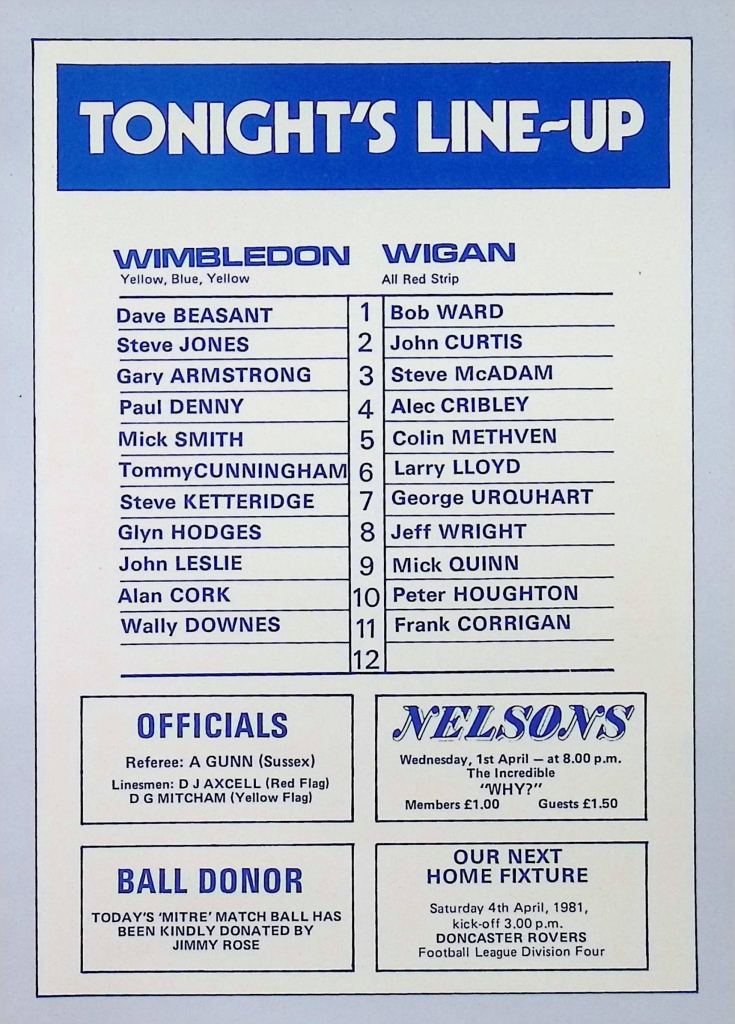 TONIGHT'S LINE-UP
WIMBLEDON WIGAN
Yellow, Blue, Yellow All Red Strip
Dave BEASANT 1 Bob WARD
Steve JONES 2 John CURTIS
Gary ARMSTRONG 3 Steve McADAM
Paul DENNY 4 Alec CRIBLEY
Mick SMITH 5 Colin METHVEN
Tommy CUNNINGHAM 6 Larry LLOYD
Steve KETTERIDGE 7 George URQUHART
Glyn HODGES 8 Jeff WRIGHT
John LESLIE 9 Mick QUINN
Alan CORK 10 Peter HOUGHTON
Wally DOWNES 11 Frank CORRIGAN
12
OFFICIALS
Referee: A GUNN (Sussex)
Linesmen: D J AXCELL (Red Flag)
D G MITCHAM (Yellow Flag)
NELSONS
Wednesday, 1st April — at 8.00 p.m.
The Incredible
"WHY?"
Members £1.00 Guests £1.50
BALL DONOR
TODAY'S 'MITRE' MATCH BALL HAS
BEEN KINDLY DONATED BY
JIMMY ROSE
OUR NEXT
HOME FIXTURE
Saturday 4th April, 1981,
kick-off 3.00 p.m.
DONCASTER ROVERS
Football League Division Four